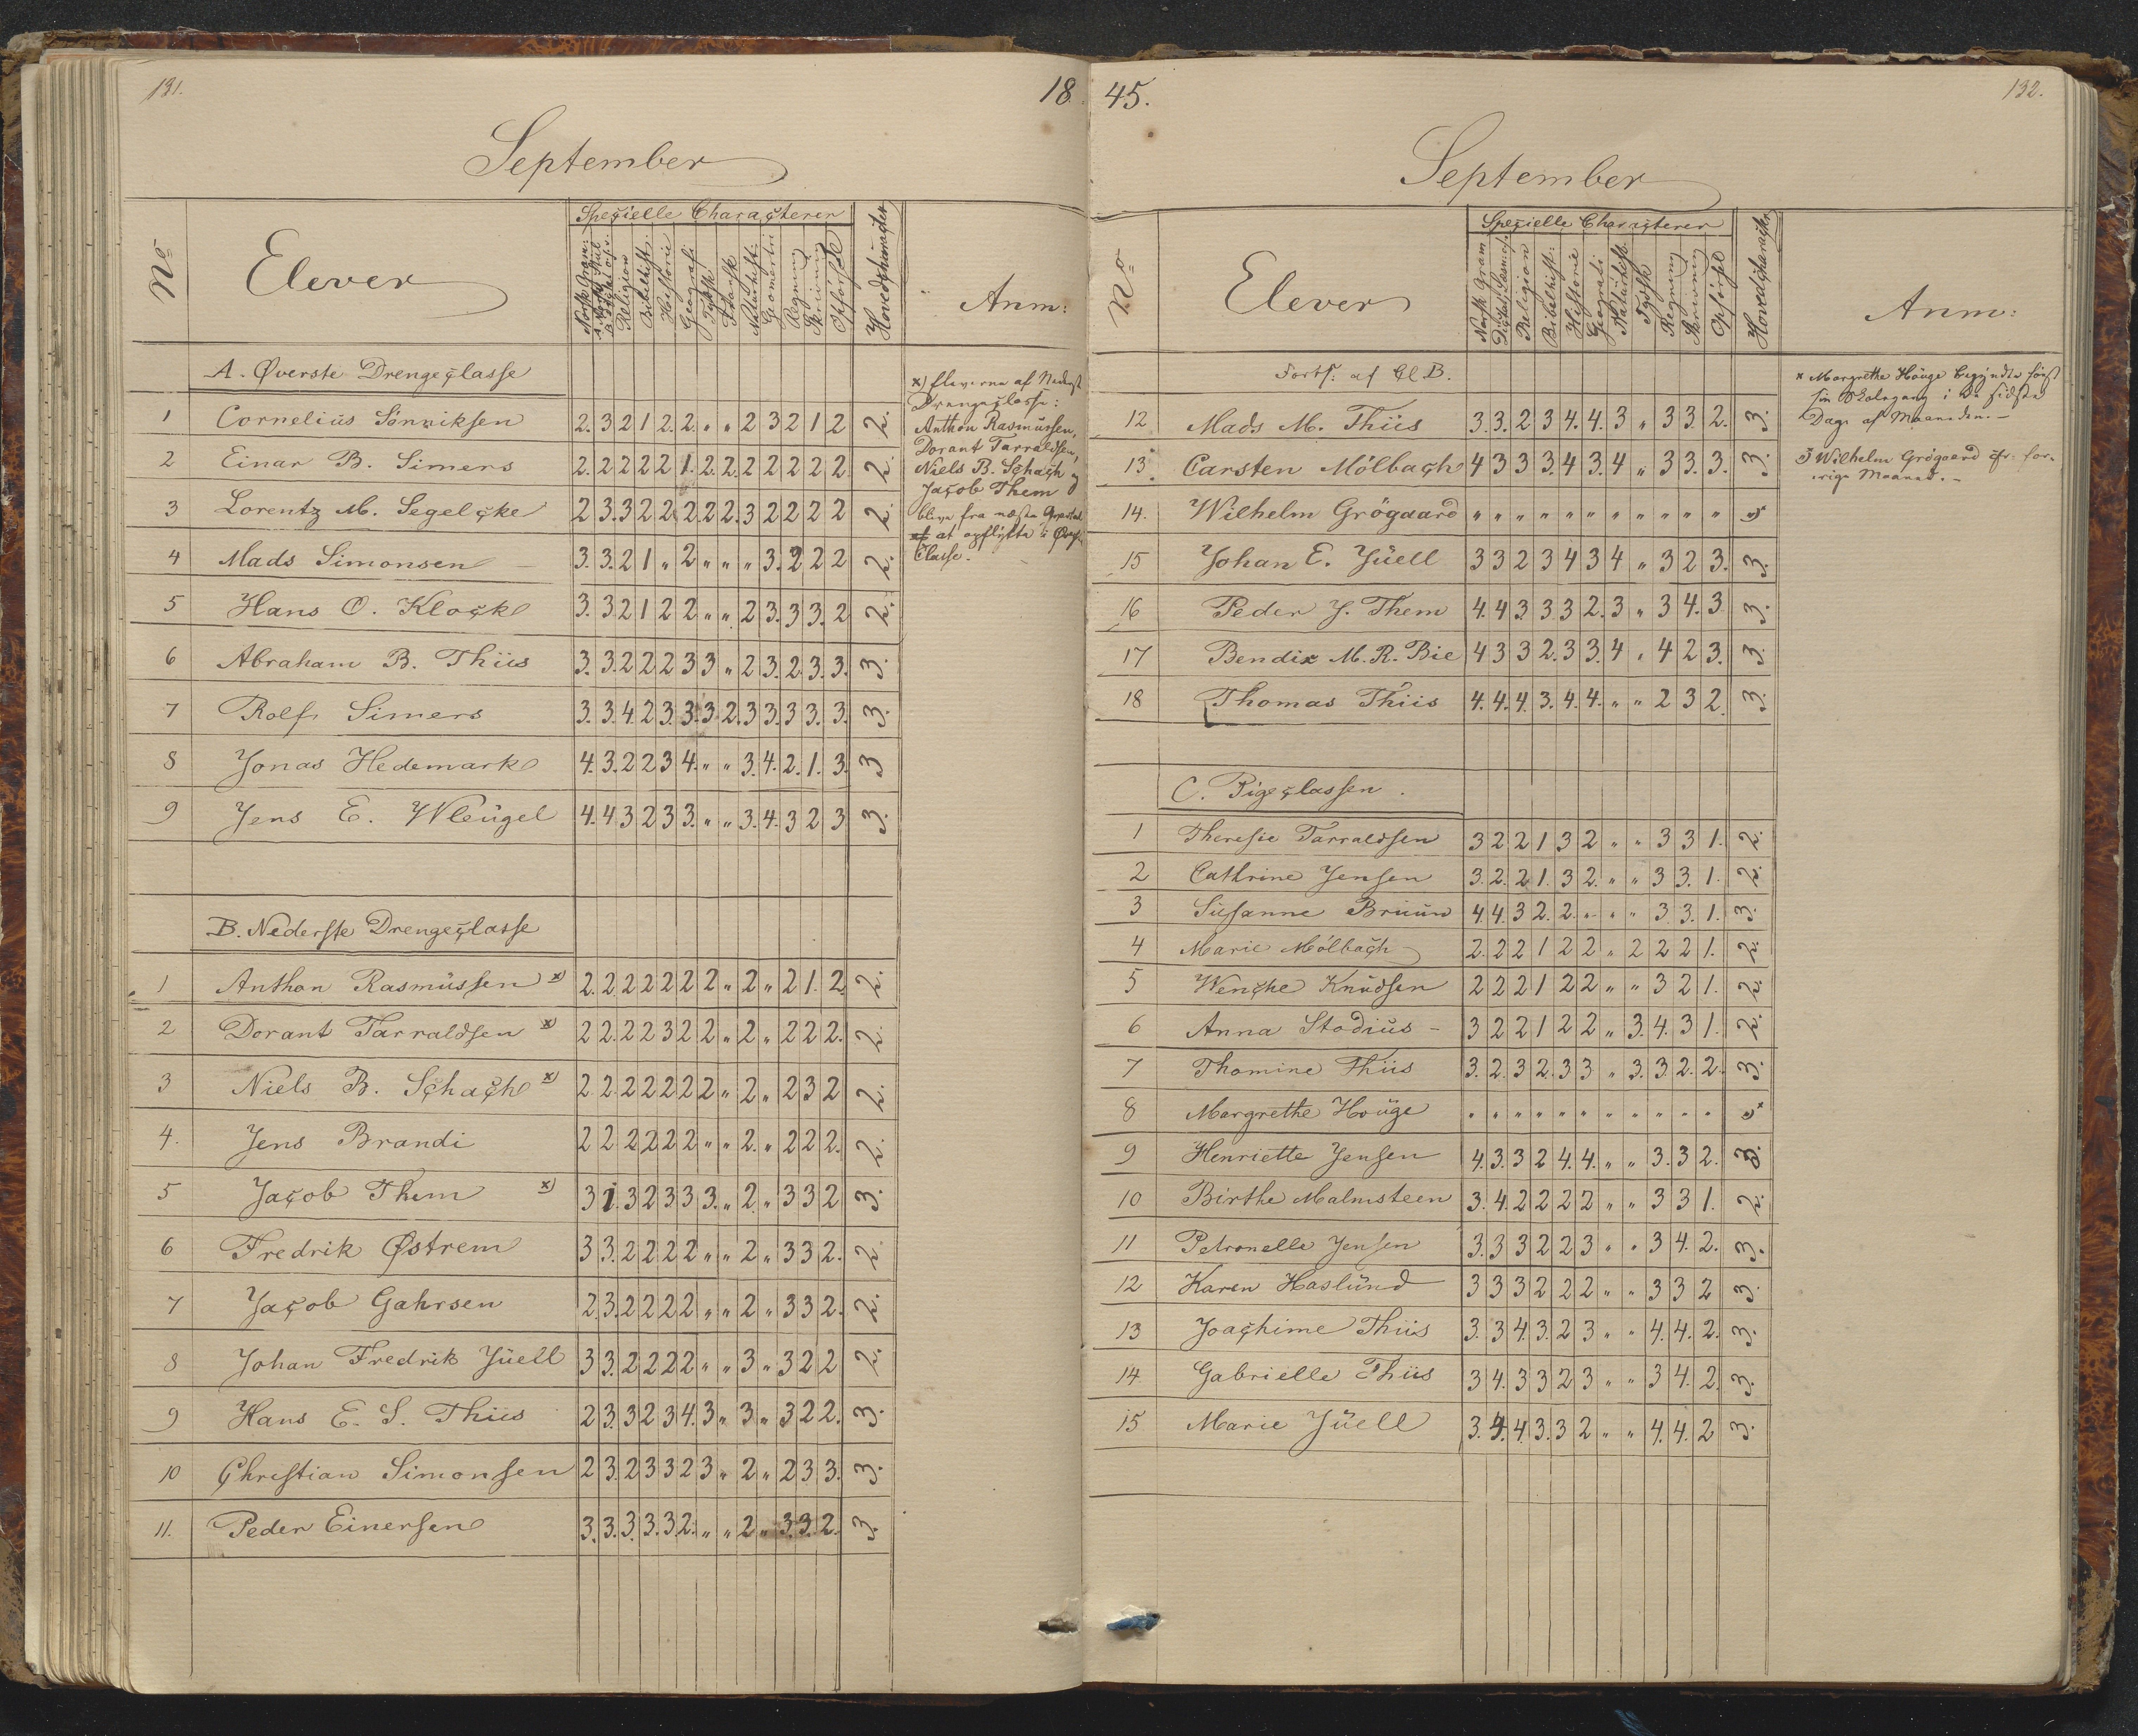 131.
18
September
No
Elever
Specielle Characterer
Norsk Gram:
Religion
Bibelhist.
Historie
Geografi
Tydsk
Fransk
Naturhist.
Geometri
Regning
Skrivning
Opförsel
Hovedcharacter
Anm:
A. Øverste Drengeclasse
1 Cornelius Sönniksen 2. 3 2 1 2. 2. " " 2 3 2 1 2 2.
2 Einar B. Simers 2. 2 2 2 2 1. 2. 2. 2 2 2 2 2 2.
3 Lorentz M. Segelcke 2 3. 3 2 2. 2. 2. 2. 3 2 2 2 2 2.
4 Mads Simonsen 3. 3. 2 1 " 2 " " " 3. 2 2 2 2.
5 Hans O. Klocke 3. 3 2 1 2 2 " " 2 3. 3 3. 2 2.
6 Abraham B. Thiis 3. 3. 2 2 2 3 3 " 2 3. 2. 3. 3. 3.
7 Rolf Simers 3. 3. 4. 2 3. 3. 3 2. 3 3. 3 3. 3. 3.
8 Jonas Hedemark 4. 3. 2 2 3 4. " " 3. 4. 2. 1. 3. 3
9 Jens E. Wleugel 4. 4 3 2 3 3. " " 3. 4. 3 2 3 3.
B. Nederste Drengeclasse
1 Anthon Rasmussen x) 2. 2. 2 2 2 2 2 " 2 " 2 1. 2 2.
2 Dorant Tarraldsen x) 2 2. 2 2 3 2 2 " 2 " 2 2 2. 2.
3 Niels B. Schach x) 2. 2. 2 2 2 2 2 " 2 " 2 3 2 2.
4. Jens Brandi 2 2 2 2 2 2 " " 2. " 2 2 2. 2.
5 Jacob Them x) 3 1. 3 2 3 3 3. " 2 " 3 3 2 3.
6 Fredrik Østrem 3 3. 2 2 2 2 " " 2 " 3 3 2. 2.
7 Jacob Gahrsen 2. 3. 2 2 2 2 " " 2 " 3 3 2. 2.
8 Johan Fredrik Jüell 3 3. 2 2 2 2 " " 3 " 3 2 2 2.
9 Hans E. S. Thiis 2 3. 3 2 3 4. 3 " 3 " 3 2 2. 3.
10 Christian Simonsen 2 3. 2 3 3 2 3 " 2 " 2 3 3. 3.
11. Peder Einersen 3. 3. 3. 3. 3. 2. " " 2 " 3. 3. 2. 3
x) Eleverne af Nederst
Drengeclasse:
Anthon Rasmussen,
Dorant Tarraldsen,
Niels B. Schach og
Jacob Them
blive fra næste
at opflytte i Øverste
Classe.
45.
132.
September
No
Elever
Specielle Characterer
Norsk Gram
Religion
Bibelhist:
Historie
Geografi
Naturhist.
Tydsk
Regning
Skrivning
Opförsel
Hovedcharacter
Anm:
Forts: af Cl B.
12 Mads M. Thiis 3. 3. 2 3 4. 4. 3 " 3 3. 2. 3.
13. Carsten Mölbach 4 3 3 3. 4 3. 4 " 3 3. 3. 3.
14. Wilhelm Grögaard " " " " " " " " " " "
15 Johan E. Jüell 3 3 2 3 4 3 4 " 3 2 3. 3.
16 Peder J. Them 4. 4 3 3 3 2. 3 " 3 4. 3 3.
17 Bendix M. R. Bie 4 3 3 2. 3 3. 4 " 4 2 3. 3.
18 Thomas Thiis 4. 4. 4. 3. 4. 4. " " 2 3 2. 3.
C. Pigeclassen.
1 Theresie Tarraldsen 3 2 2 1 3 2 " " 3 3 1. 2.
2 Cathrine Jensen 3. 2. 2 1. 3 2. " " 3 3. 1. 2.
3 Susanne Bruun 4. 4. 3 2. 2. " " " 3 3. 1. 3.
4 Marie Mölbach 2. 2 2 1 2 2 " 2 2 2 1. 2.
5 Wenche Knudsen 2 2 2 1 2 2 " " 3 2 1. 2.
6 Anna Stodius - 3 2 2 1 2 2 " 3. 4. 3 1. 2.
7 Thomine Thiis 3. 2. 3 2. 3 3 " 3. 3. 2. 2. 3.
8 Margrethe Houge " " " " " " " " " " "
9 Henriette Jensen 4. 3. 3 2 4. 4. " " 3. 3 2. 3.
10 Birthe Malmsteen 3. 4. 2 2 2 2 " " 3 3 1. 2.
11 Petronelle Jensen 3. 3 3 2 2 3 " " 3 4. 2. 3.
12 Karen Haslund 3 3 3 2 2 2 " " 3 3 2 3.
13 Joachime Thiis 3. 3 4. 3. 2 3 " " 4. 4. 2. 3.
14 Gabrielle Thiis 3 4. 3 3 2 3 " " 3 4. 2. 3.
15 Marie Jüell 3. 4. 4. 3. 3 2 " " 4. 4. 2 3.
x Margrethe Houge begyndte först
sin Skolegang i de sidste
Dage af Maaneden. -
Wilhelm Grögaard cfr: for-
rige Maaned. -